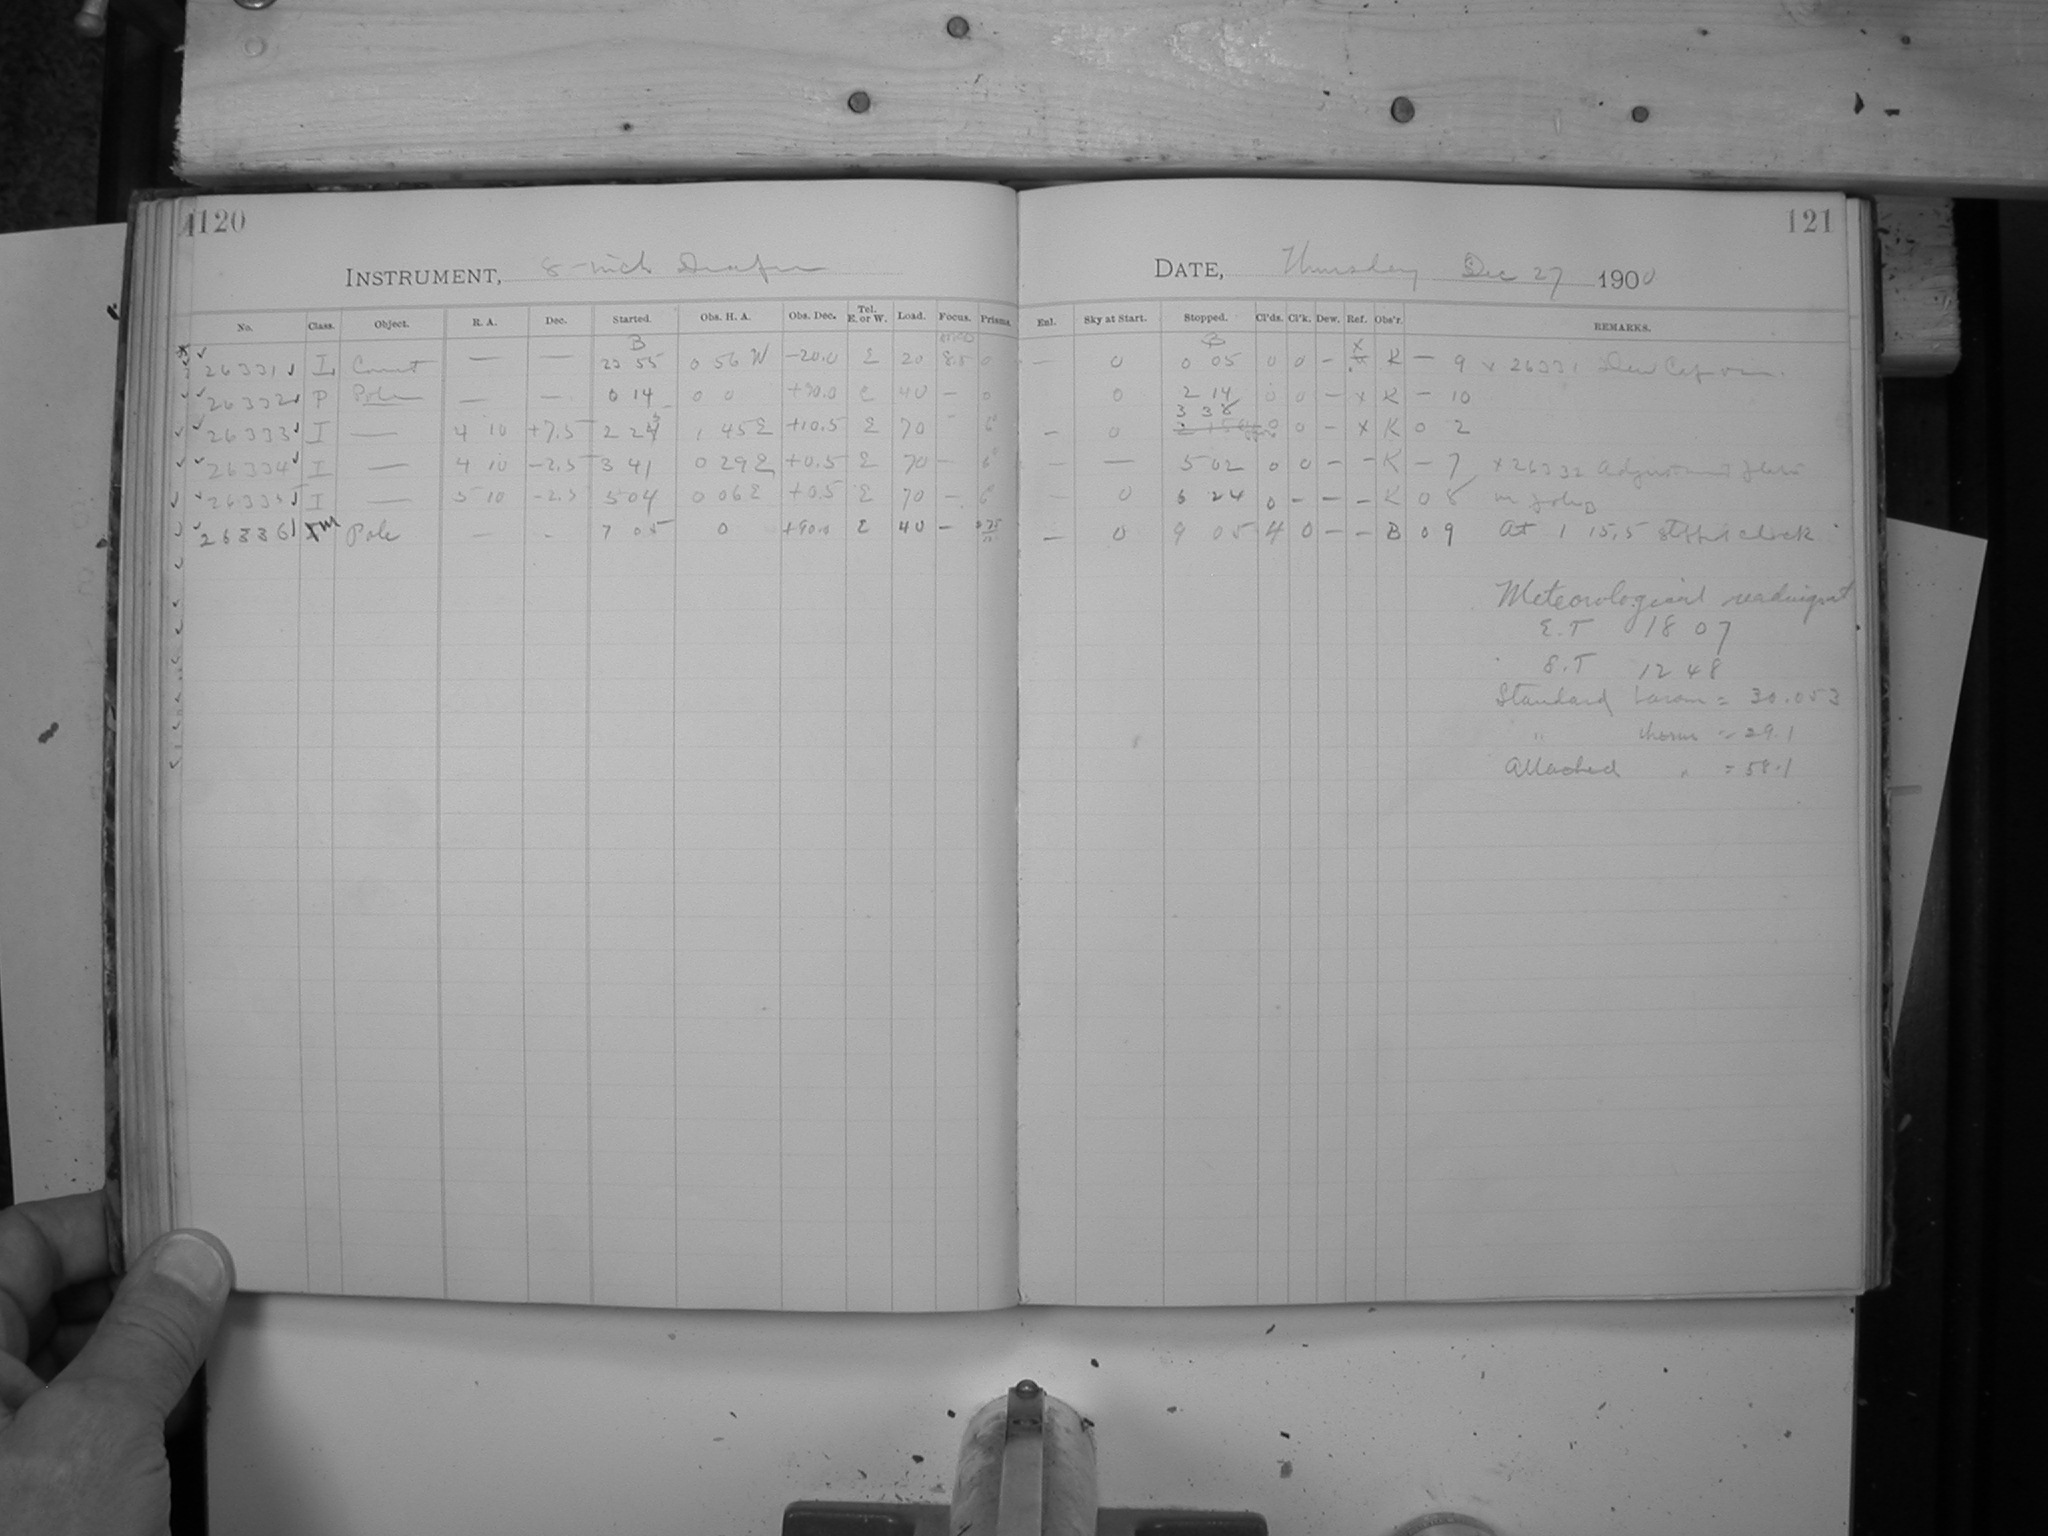 120
121
INSTRUMENT, 8-inch Draper
DATE, Thursday Dec 27 1900
No. Class. Object. R. A. Dec. Started. Obs. H. A. Obs. Dec. Tel. E. or W. Load. Focus. Prisms. Enl. Sky at Start. Stopped. Cl'ds. Cl'k. Dew. Ref. Obs'r. REMARKS.
B B
26331 I Comet — — 23 55 0 56 W -20.0 E 20 8.5 0 — 0 0 05 0 0 — x K — 9 x 26331 Dew Cap on.
26332 P Pole — — 0 14 0 0 +90.0 E 40 — 0 0 2 14 0 0 — x K — 10
3 38
26333 I — 4 10 +7.5 2 24 1 45 E +10.5 E 70 — 0 0 — x K 0 2
26334 I — 4 10 -2.5 3 41 0 29 E +0.5 E 70 — — — 5 02 0 0 — — K — 7 x 26332 Adjustment plate
26335 I — 5 10 -2.5 5 04 0 06 E +0.5 E 70 — — 0 6 24 0 — — — K 0 8
26336 M Pole — — 7 05 0 +90.0 E 40 — — 0 9 05 4 0 — — B 0 9 At 1 15.5 stopped clock
Meteorological readings at
E.T 18 07
S.T 12 48
Standard barom = 30.053
" therm = 29.1
Attached " = 58.1